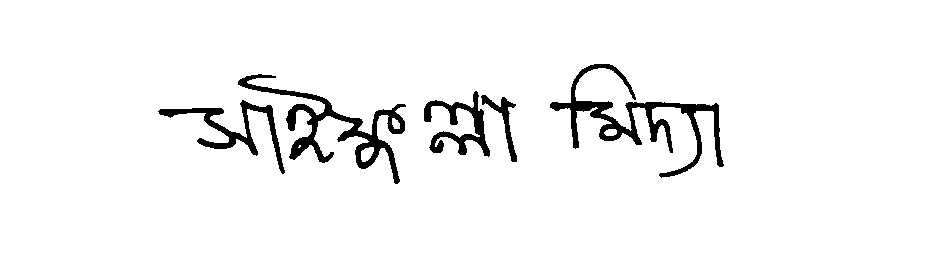 সাইফুল্লা মিদ্যা